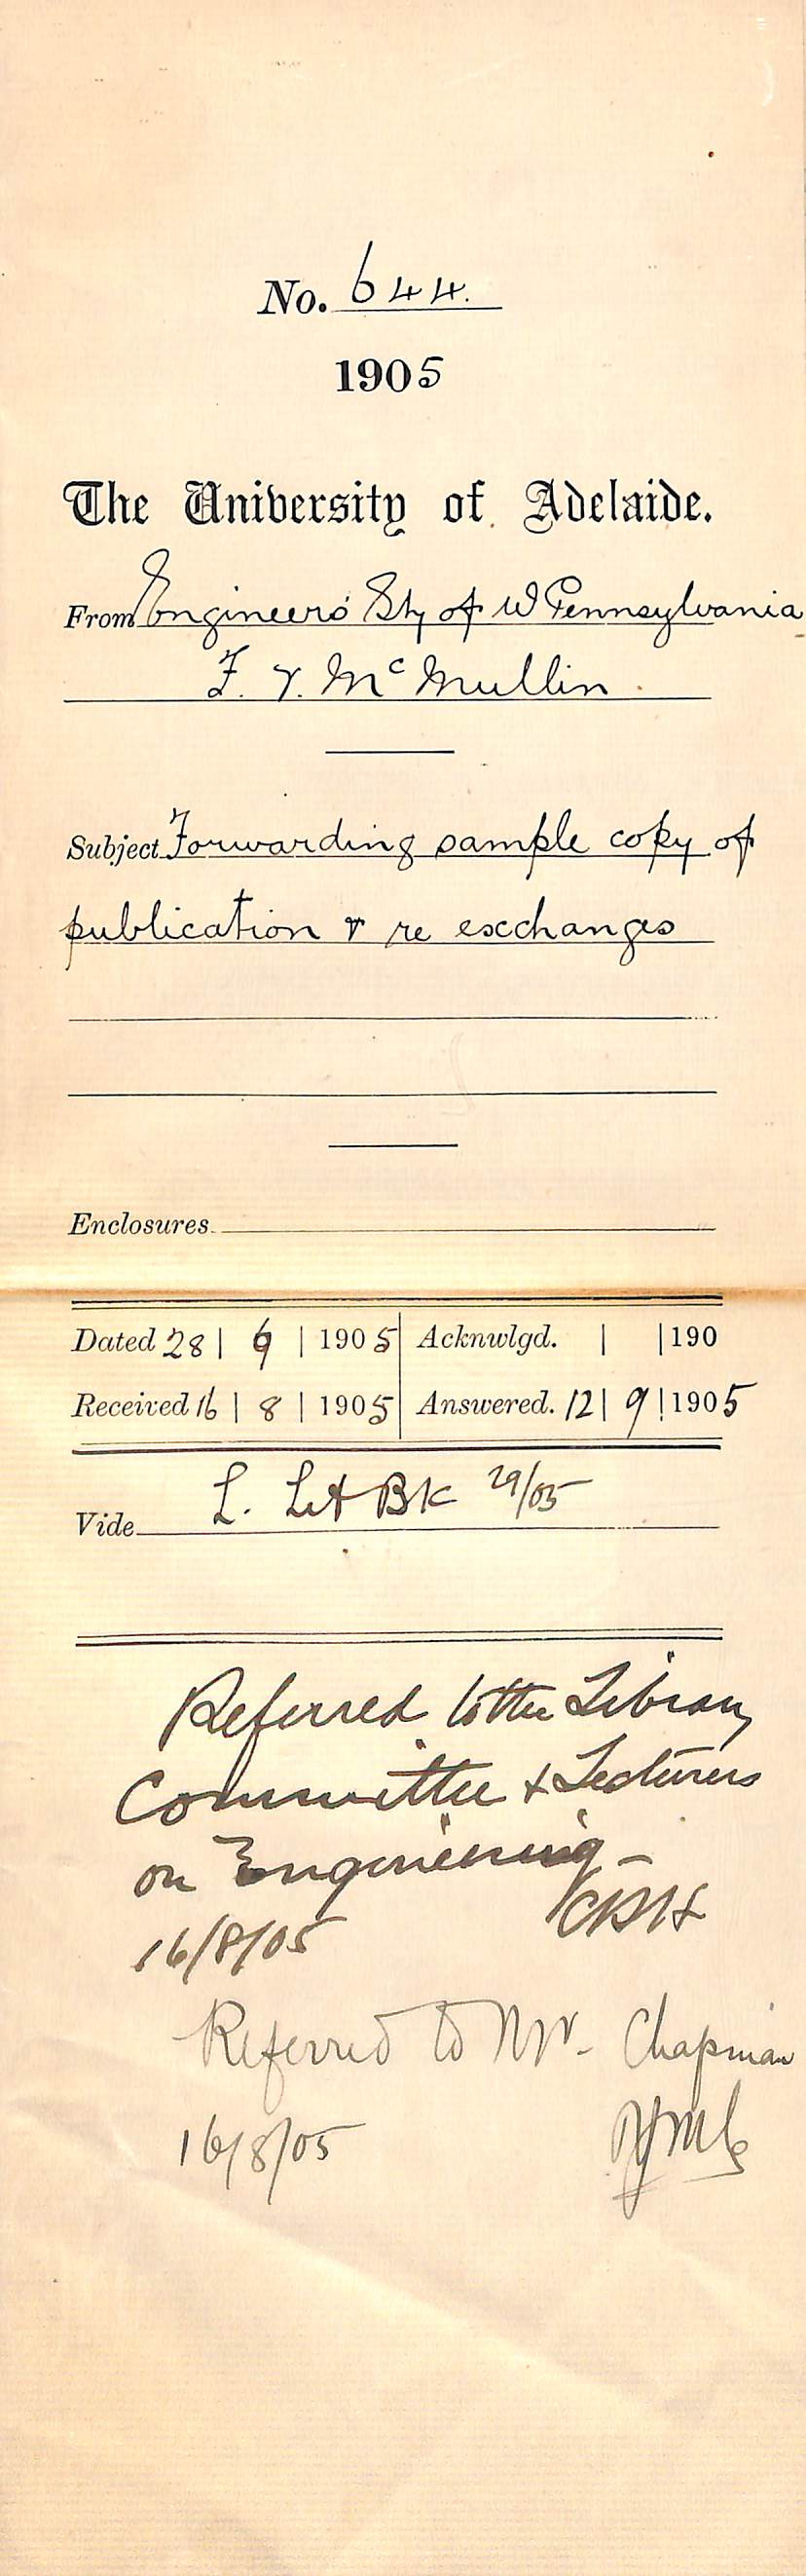 No. 644.
1905
The University of Adelaide.
From Engineers' Sty of W Pennsylvania
F. Y. McMullin.
Subject Forwarding sample copy of
publication & re exchanges
Enclosures
Dated 28 | 6 | 1905 | Acknwlgd. | | 190
Received 16 | 8 | 1905 | Answered. 12 | 9 | 1905
Vide L. Let Bk 29/05
Referred to the Library
Committee & Lecturers
on Engineering -
16/8/05
Referred to Mr. Chapman
16/8/05